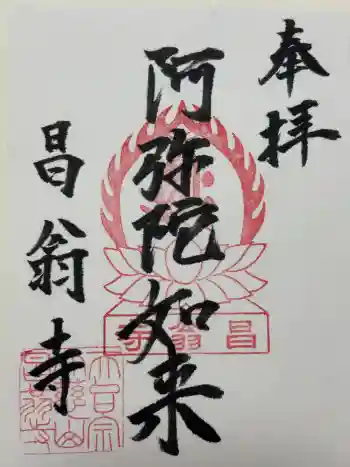 奉拝
阿弥陀如来
昌翁寺
昌翁寺
天台宗